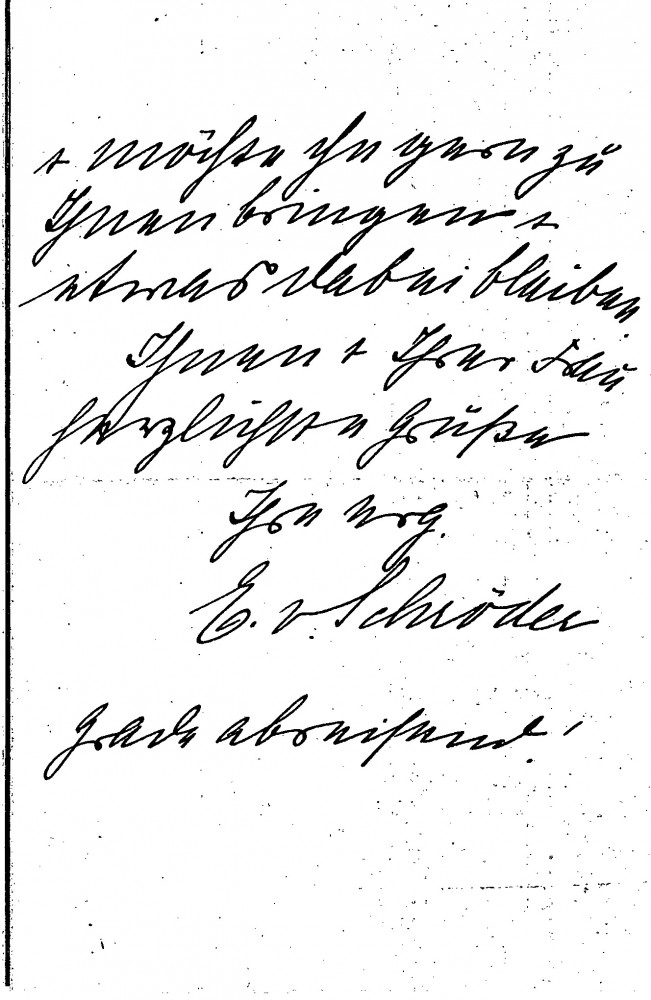 + möchte ihn gern zu
Ihnen bringen +
etwas dabei bleiben.
Ihnen + Ihrer Frau
herzlichste Grüße
Ihre erg.
E. v. Schröder
Grade abreisend!